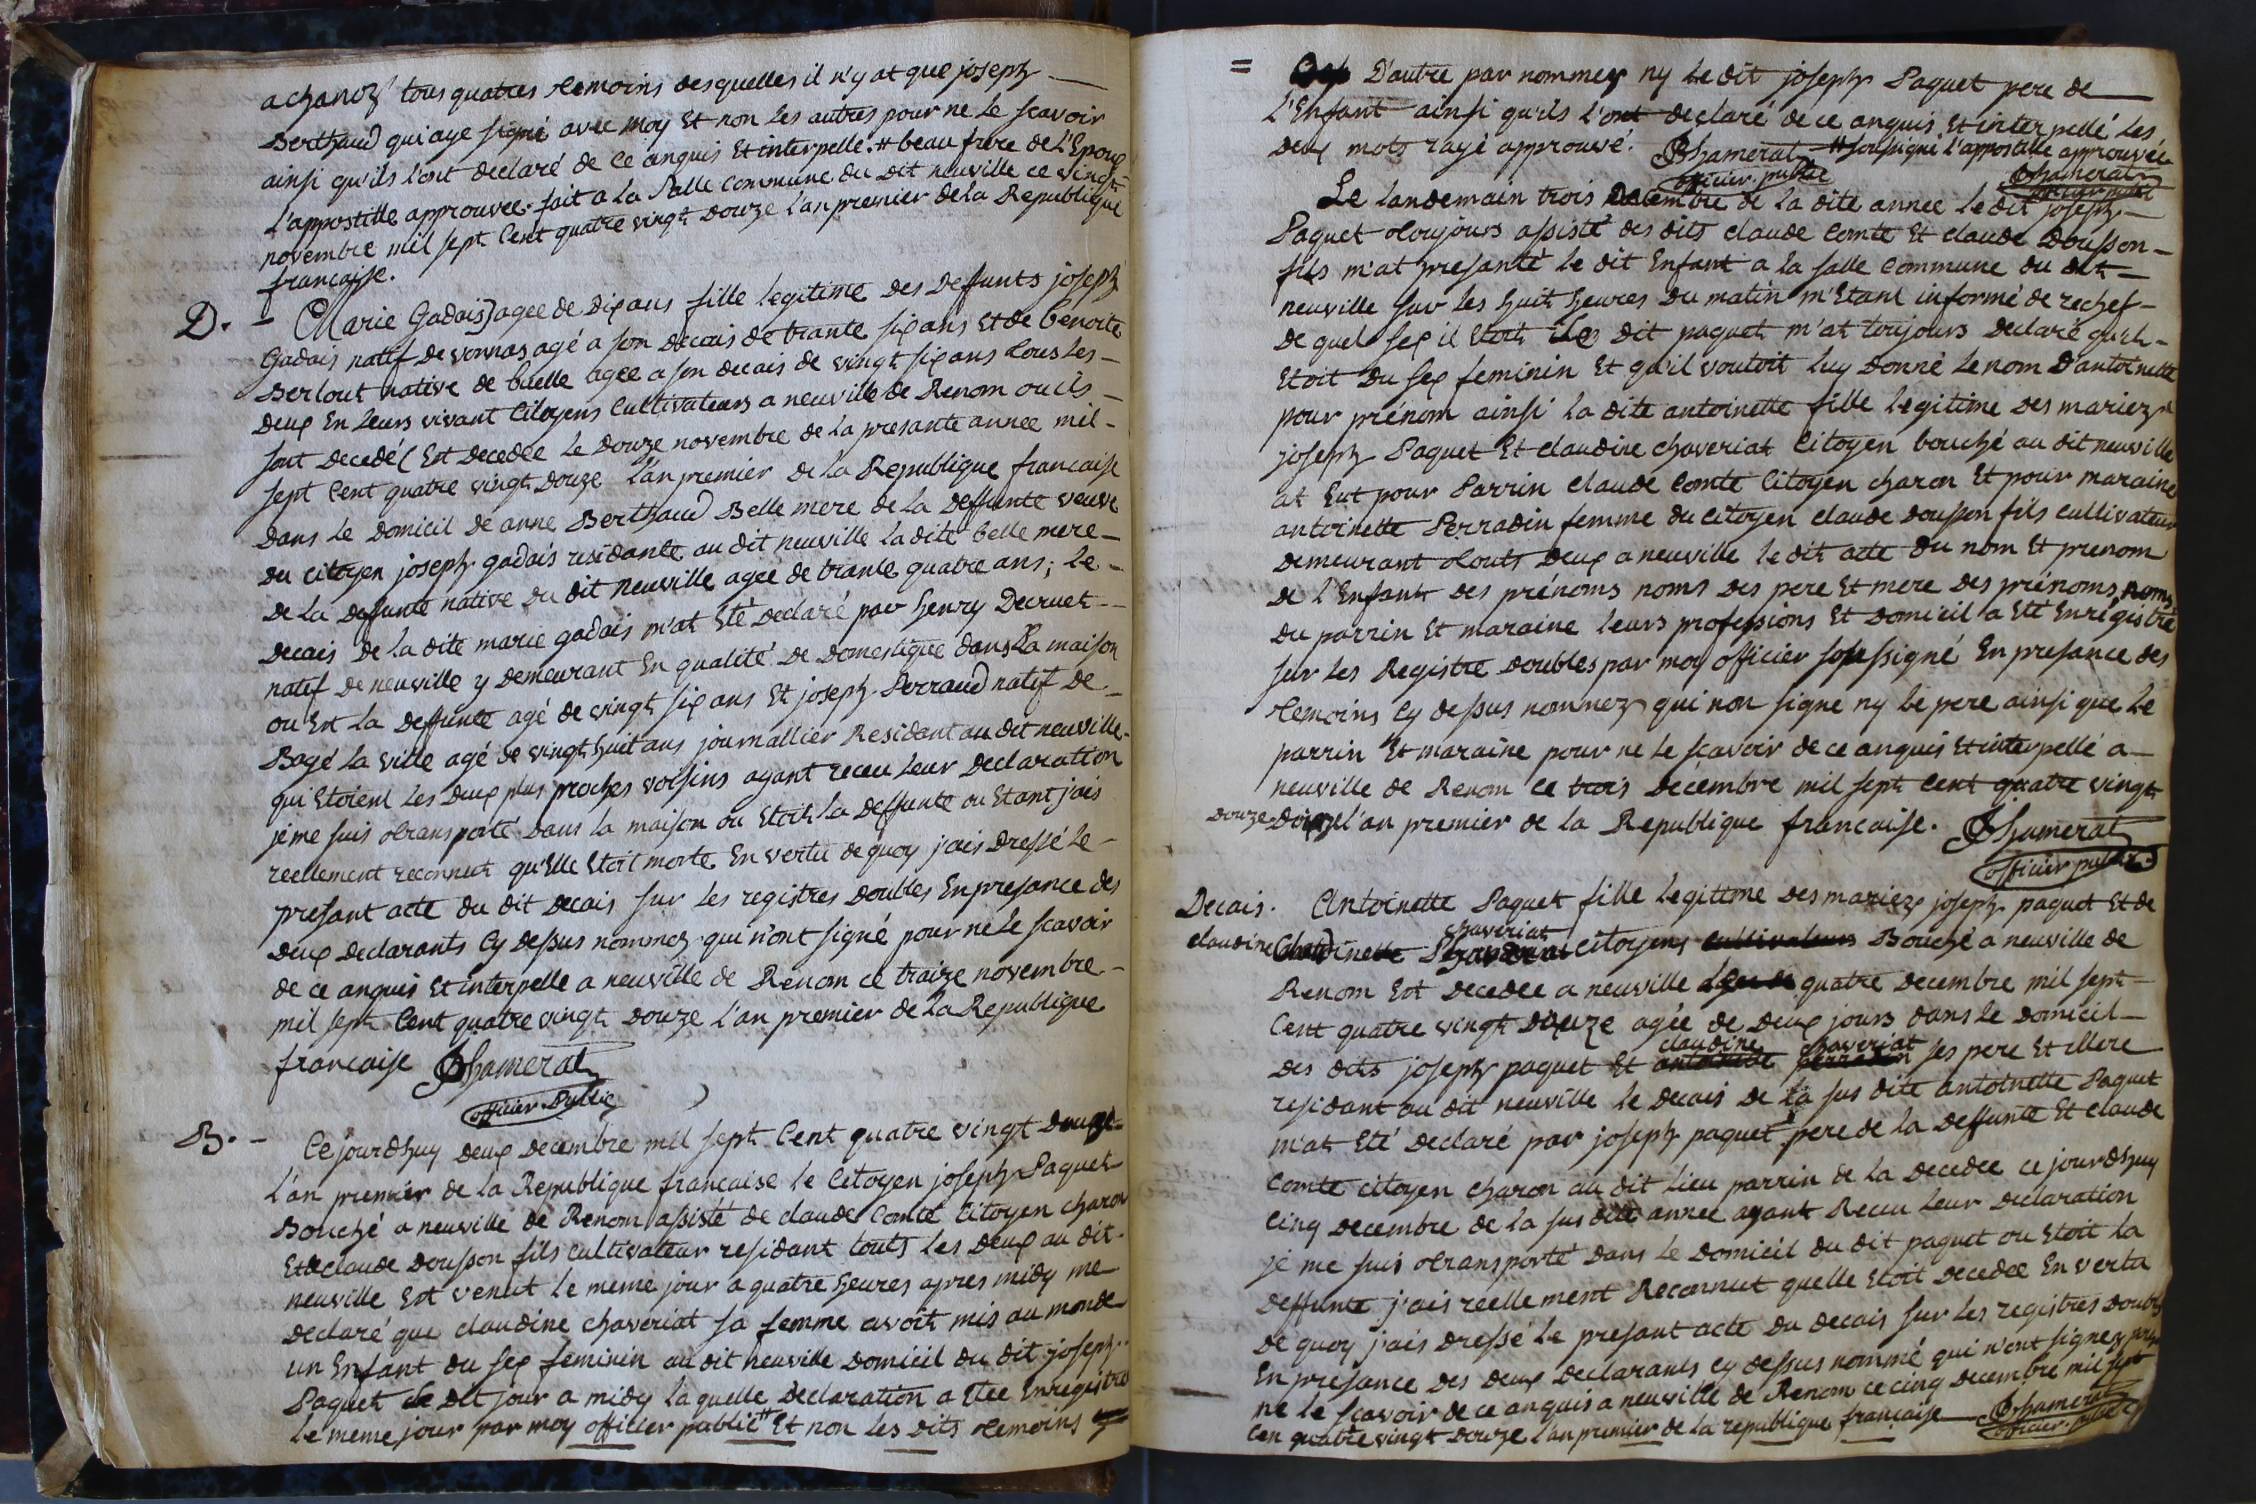 a chanoz tous quatres temoins desquelles il n'y at que joseph
Berthaud qui aye signé avec moy Et non les autres pour ne le scavoir
ainsi qu'ils l'ont declaré de ce anquis Et interpellé. # beau frere de l'Epoux
l'appostille approuvee. fait a la Salle commune du dit neuville ce vingt
novembre mil sept Cent quatre vingt douze l'an premier de la Republique
francaise.
D. - Marie Gadais) agee de Dix ans fille legitime des Deffunts joseph
Gadais natif de vonnas agé a son decais de trante six ans Et de benoite
Berlout native de buelle agee a son decais de vingt six ans tous les
deux En leurs vivant Citoyens Cultivateurs a neuville de Renom ou ils
sont decedé ( Est decedée le douze novembre de la presante annee mil
sept Cent quatre vingt douze l'an premier de la Republique francaise
dans le domicil de anne Berthaud Belle mere de la deffunte veuve
du citoyen joseph gadais residante au dit neuville la dite belle mere
de la deffunte native du dit neuville agée de trante quatre ans; le
decais de la dite marie gadais m'at Eté declaré par henry Decruet
natif de neuville y demeurant En qualité de domestique dans la maison
ou Est la deffunte agé de vingt six ans Et joseph Perraud natif de
Bagé la ville agé de vingt huit ans journallier Residant au dit neuville
qui Etoient les deux plus proches voisins ayant receu leur declaration
je me suis transporté dans la maison ou Etoit la deffunte ou Etant j'ais
reellement reconnut qu'Elle Etoit morte. En vertu de quoy j'ais dressé le
presant acte du dit decais sur les registres doubles En presance des
deux declarants Cy dessus nommez qui n'ont signé pour ne le scavoir
de ce anquis Et interpelle a neuville de Renom ce traize novembre
mil sept Cent quatre vingt douze l'an premier de la Republique
francaise Chamerat
officier Public
B. - Ce jourdhuy deux decembre mil sept Cent quatre vingt douze
l'an premier de la Republique francaise le Citoyen joseph Paquet
Bouché a neuville de Renom assisté de claude Comte Citoyen charon
Et de claude dousson fils cultivateur residant touts les deux au dit
neuville Est venut le meme jour a quatre heures apres midy me
declaré que claudine chaveriat sa femme avoit mis au monde
un Enfant du sex feminin au dit neuville domicil du dit joseph
Paquet le dit jour a midy la quelle declaration a Etee Enregistré
le meme jour par moy officier public # Et non les dits temoins
= D'autre par nommez ny le dit joseph Paquet pere de
l'Enfant ainsi qu'ils l'ont declaré de ce anquis Et interpellé les
deux mots rayé approuvé. Chamerat # soussigné l'appostille approuvée
officier public Chamerat
officier public
Le landemain trois decembre de la dite annee le dit joseph
Paquet toujours assisté des dits claude Comte Et claude Dousson
fils m'at presanté le dit Enfant a la salle Commune du dit
neuville sur les huit heures du matin m'Etant informé de rechef
de quel sex il Etoit le dit paquet m'at toujours declaré qu'il
Etoit du sex feminin Et qu'il vouloit luy donné le nom D'antoinette
pour prénom ainsi la dite antoinette fille legitime des mariez
joseph Paquet Et claudine chaveriat Citoyen bouché au dit neuville
at Eut pour Parrin claude Comte Citoyen charon Et pour maraine
antoinette Perradin femme du citoyen claude dousson fils cultivateur
demeurant touts deux a neuville le dit acte du nom Et prenom
de l'Enfant des prénoms noms des pere Et mere des prénoms, noms
du parrin Et maraine leurs professions Et domicil a Eté Enrégistré
sur les Registre doubles par moy officier soussigné En presance des
temoins Cy dessus nommez qui non signe ny le pere ainsi que le
parrin Et maraine pour ne le scavoir de ce anquis Et interpellé a
neuville de Renom ce trois decembre mil sept Cent quatre vingt
douze l'an premier de la Republique francaise. Chamerat
officier public
Decais. Antoinette Paquet fille legittime des mariez joseph paquet Et de
chaveriat
claudine Citoyens Bouché a neuville de
Renom Est decedee a neuville quatre decembre mil sept
Cent quatre vingt douze agée de deux jours dans le domicil
claudine chaveriat
des dits joseph paquet Et ses pere Et Mere
residant au dit neuville le decais de la sus dite antoinette Paquet
m'at Eté declaré par joseph paquet pere de la deffunte Et claude
Comte citoyen charon au dit lieu parrin de la decedee ce jourdhuy
cinq decembre de la sus dite annee ayant Receu leur declaration
je me suis transporté dans le domicil du dit paquet ou Etoit la
deffunte j'ais reellement Reconnut quelle Etoit decedee En vertu
de quoy j'ais dressé le presant acte du decais sur les registres doubles
En presance des deux declarants cy dessus nommé qui n'ont signez pour
ne le scavoir de ce anquis a neuville de Renom ce cinq decembre mil sept
Cen quatre vingt douze l'an premier de la republique francaise Chamerat
officier public